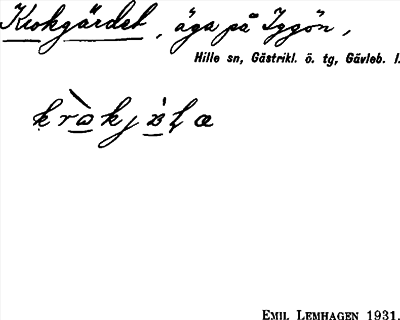 Krokgärdet, äga på Iggön,
Hille sn, Gästrikl. ö. tg, Gävleb. l.
EMIL LEMHAGEN 1931.